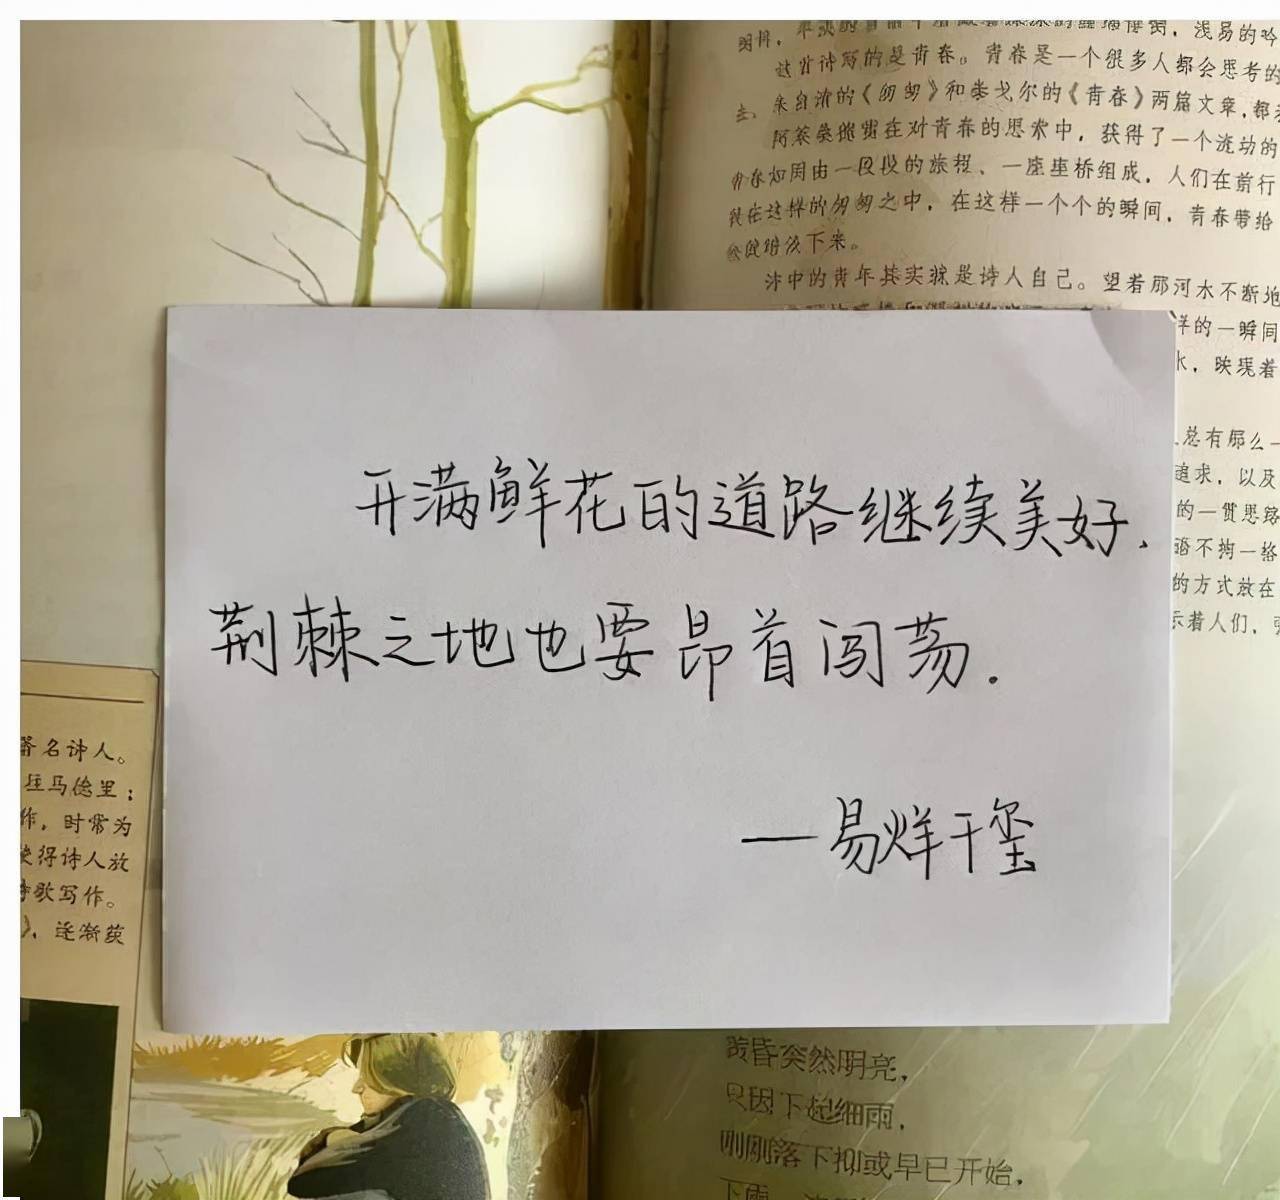 这首诗写的是青春。青春是一个很多人都会思考的
朱自清的《匆匆》和泰戈尔的《青春》两篇文章,都
在对青春的思索中，获得了一个流动的
如同由一段段的旅程、一座座桥组成，人们在前行
在这样的匆匆之中，在这样一个个的瞬间，青春带给
下来。
诗中的青年其实就是诗人自己。望着那河水不断地
样的一瞬间
水，映现着
总有那么一
追求，以及
的一贯思路
不拘一格
的方式放在
示着人们，
开满鲜花的道路继续美好.
荆棘之地也要昂首闯荡.
—易烊千玺
著名诗人。
马德里；
作，时常为
使得诗人放
诗歌写作。
》，逐渐获
黄昏突然明亮，
只因下起细雨，
刚刚落下抑或早已开始，
下雨